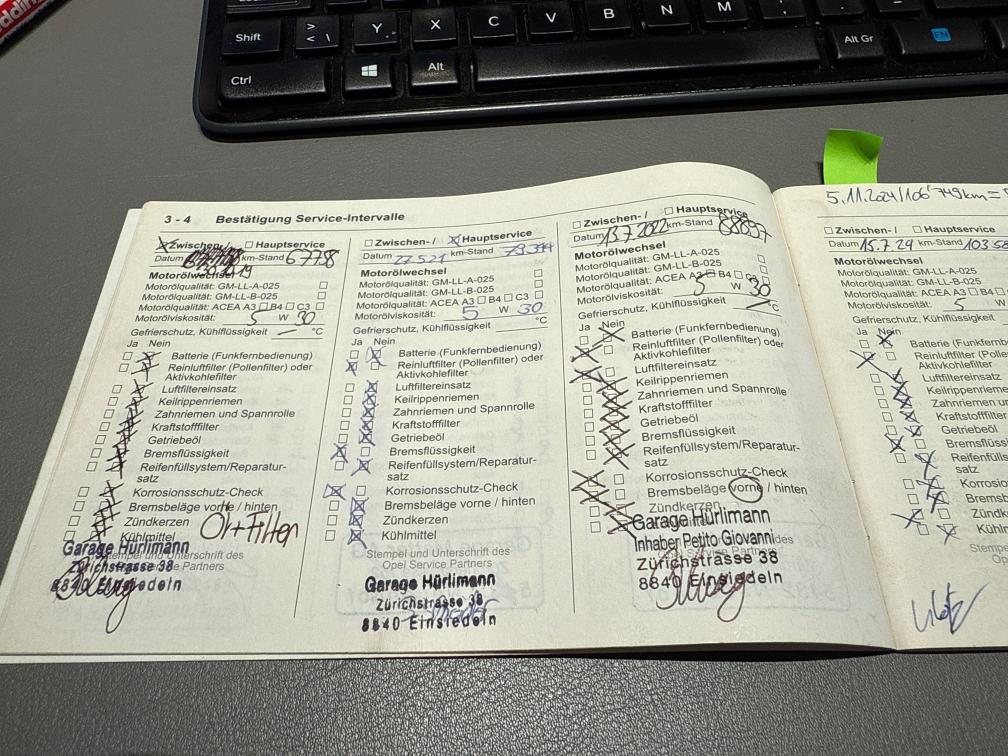 Shift
> < \
Y
X
C
V
B
N
M
Alt Gr
FN
Ctrl
Alt
3 - 4 Bestätigung Service-Intervalle
Zwischen- Hauptservice
Datum km-Stand 67798
Motorölwechsel
Motorölqualität: GM-LL-A-025
Motorölqualität: GM-LL-B-025
Motorölqualität: ACEA A3 B4 C3
Motorölviskosität: 5 W 30
Gefrierschutz, Kühlflüssigkeit — °C
Ja Nein
Batterie (Funkfernbedienung)
Reinluftfilter (Pollenfilter) oder
Aktivkohlefilter
Luftfiltereinsatz
Keilrippenriemen
Zahnriemen und Spannrolle
Kraftstofffilter
Getriebeöl
Bremsflüssigkeit
Reifenfüllsystem/Reparatur-
satz
Korrosionsschutz-Check
Bremsbeläge vorne / hinten
Zündkerzen
Kühlmittel
Öl+Filter
Stempel und Unterschrift des
Opel Service Partners
Garage Hürlimann
Zürichstrasse 38
8840 Einsiedeln
Zwischen- / Hauptservice
Datum 27.5.21 km-Stand 79.344
Motorölwechsel
Motorölqualität: GM-LL-A-025
Motorölqualität: GM-LL-B-025
Motorölqualität: ACEA A3 B4 C3
Motorölviskosität: 5 W 30
Gefrierschutz, Kühlflüssigkeit °C
Ja Nein
Batterie (Funkfernbedienung)
Reinluftfilter (Pollenfilter) oder
Aktivkohlefilter
Luftfiltereinsatz
Keilrippenriemen
Zahnriemen und Spannrolle
Kraftstofffilter
Getriebeöl
Bremsflüssigkeit
Reifenfüllsystem/Reparatur-
satz
Korrosionsschutz-Check
Bremsbeläge vorne / hinten
Zündkerzen
Kühlmittel
Stempel und Unterschrift des
Opel Service Partners
Garage Hürlimann
Zürichstrasse 38
8840 Einsiedeln
Zwischen- / Hauptservice
Datum 13.7.2022 km-Stand 88697
Motorölwechsel
Motorölqualität: GM-LL-A-025
Motorölqualität: GM-LL-B-025
Motorölqualität: ACEA A3 B4 C3
Motorölviskosität: 5 W 30
Gefrierschutz, Kühlflüssigkeit °C
Ja Nein
Batterie (Funkfernbedienung)
Reinluftfilter (Pollenfilter) oder
Aktivkohlefilter
Luftfiltereinsatz
Keilrippenriemen
Zahnriemen und Spannrolle
Kraftstofffilter
Getriebeöl
Bremsflüssigkeit
Reifenfüllsystem/Reparatur-
satz
Korrosionsschutz-Check
Bremsbeläge vorne / hinten
Zündkerzen
Garage Hürlimann
Inhaber Petito Giovanni
Opel Service Partners
Zürichstrasse 38
8840 Einsiedeln
5.11.2024/106'749km=
Zwischen- / Hauptservice
Datum 15.7.24 km-Stand 103
Motorölwechsel
Motorölqualität: GM-LL-A-025
Motorölqualität: GM-LL-B-025
Motorölqualität: ACEA A3 B4
Motorölviskosität: 5 W
Gefrierschutz, Kühlflüssigkeit
Ja Nein
Batterie (Funkfernb
Reinluftfilter (Polle
Aktivkohlefilter
Luftfiltereinsatz
Keilrippenrieme
Zahnriemen u
Kraftstofffilter
Getriebeöl
Bremsflüss
Reifenfülls
satz
Korrosio
Bremsb
Zündk
Kühlm
Stemp
Opel